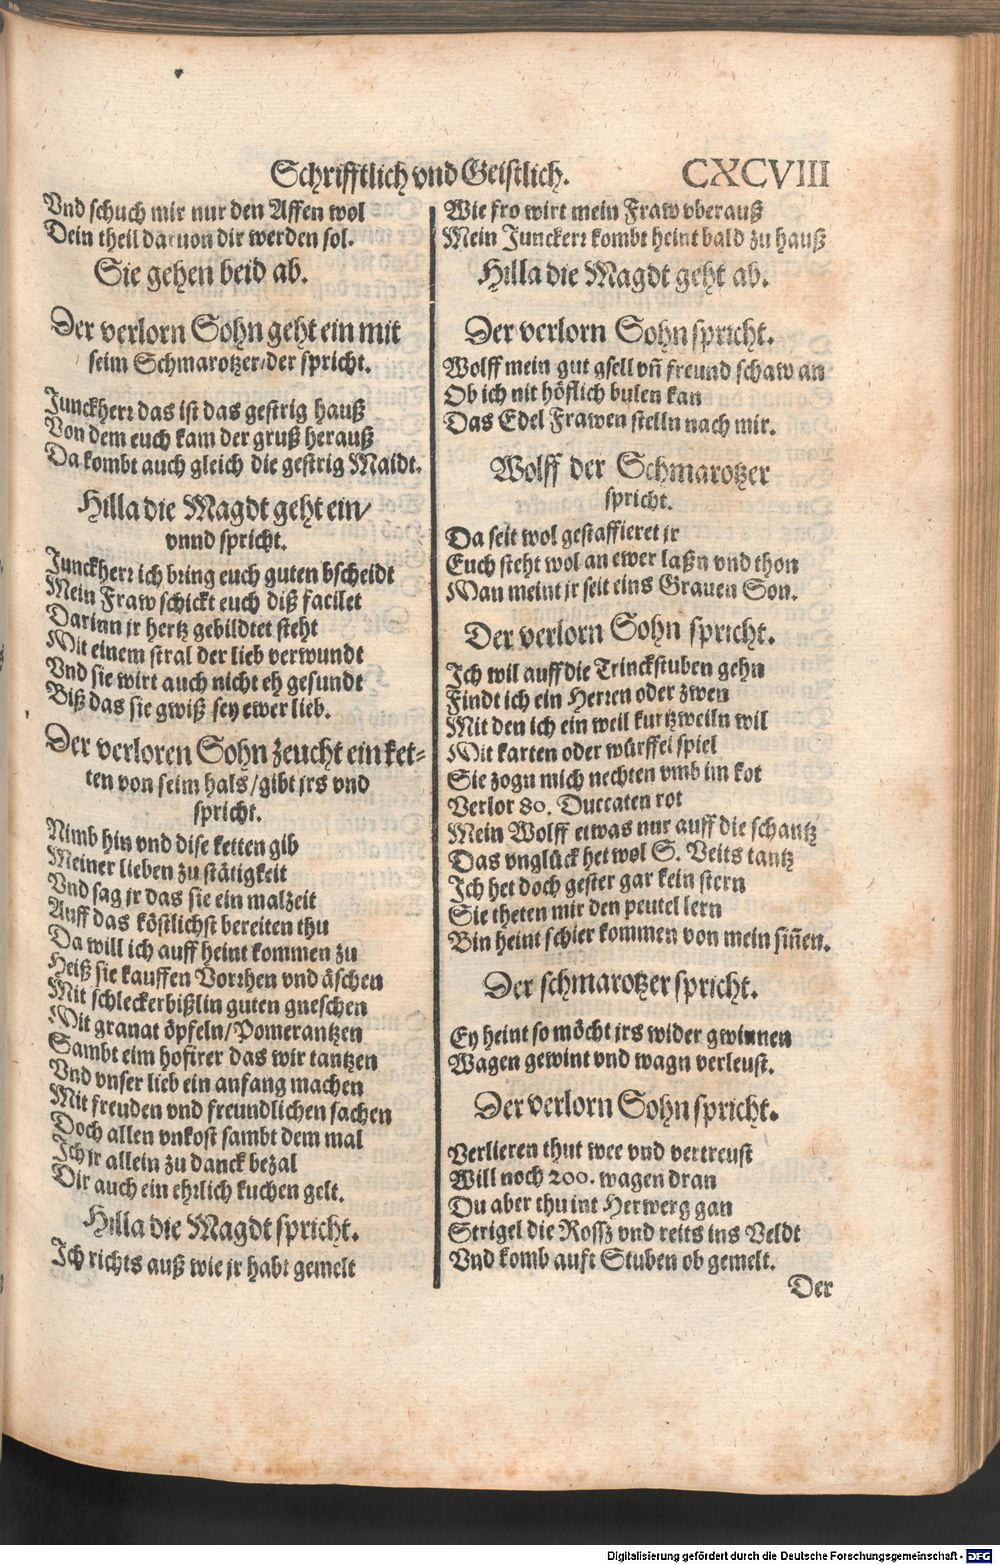 Schrifftlich vnd Geistlich. CXCVIII
Vnd schuch mir nur den Affen wol
Dein theil daruon dir werden sol.
Sie gehen beid ab.
Der verlorn Sohn geht ein mit
seim Schmarotzer/der spricht.
Junckherr das ist das gestrig hauß
Von dem euch kam der gruß herauß
Da kombt auch gleich die gestrig Maidt.
Hilla die Magdt geht ein/
vnnd spricht.
Junckherr ich bring euch guten bscheidt
Mein Fraw schickt euch diß facilet
Darinn jr hertz gebildtet steht
Mit einem stral der lieb verwundt
Vnd sie wirt auch nicht eh gesundt
Biß das sie gwiß sey ewer lieb.
Der verloren Sohn zeucht ein ket-
ten von seim hals/gibt jrs vnd
spricht.
Nimb hin vnd dise ketten gib
Meiner lieben zu stätigkeit
Vnd sag jr das sie ein malzeit
Auff das köstlichst bereiten thu
Da will ich auff heint kommen zu
Heiß sie kauffen Vorrhen vnd äschen
Mit schleckerbißlin guten gneschen
Mit granat öpfeln/Pomerantzen
Sambt eim hofirer das wir tantzen
Vnd vnser lieb ein anfang machen
Mit freuden vnd freundlichen sachen
Doch allen vnkost sambt dem mal
Ich jr allein zu danck bezal
Dir auch ein ehrlich kuchen gelt.
Hilla die Magdt spricht.
Ich richts auß wie jr habt gemelt
Wie fro wirt mein Fraw vberauß
Mein Junckerr kombt heint bald zu hauß
Hilla die Magdt geht ab.
Der verlorn Sohn spricht.
Wolff mein gut gsell vñ freund schaw an
Ob ich nit höflich bulen kan
Das Edel Frawen stelln nach mir.
Wolff der Schmarotzer
spricht.
Da seit wol gestaffieret jr
Euch steht wol an ewer laßn vnd thon
Man meint jr seit eins Grauen Son.
Der verlorn Sohn spricht.
Ich wil auff die Trinckstuben gehn
Findt ich ein Herren oder zwen
Mit den ich ein weil kurtzweiln wil
Mit karten oder würffel spiel
Sie zogn mich nechten vmb im kot
Verlor 80. Duccaten rot
Mein Wolff etwas nur auff die schantz
Das vnglück het wol S. Veits tantz
Ich het doch gester gar kein stern
Sie theten mir den peutel lern
Bin heint schier kommen von mein siñen.
Der schmarotzer spricht.
Ey heint so möcht jrs wider gwinnen
Wagen gewint vnd wagn verleust.
Der verlorn Sohn spricht.
Verlieren thut wee vnd vertreust
Will noch 200. wagen dran
Du aber thu int Herwerg gan
Strigel die Rossz vnd reits ins Veldt
Vnd komb auft Stuben ob gemelt.
Der
Digitalisierung gefördert durch die Deutsche Forschungsgemeinschaft - DFG